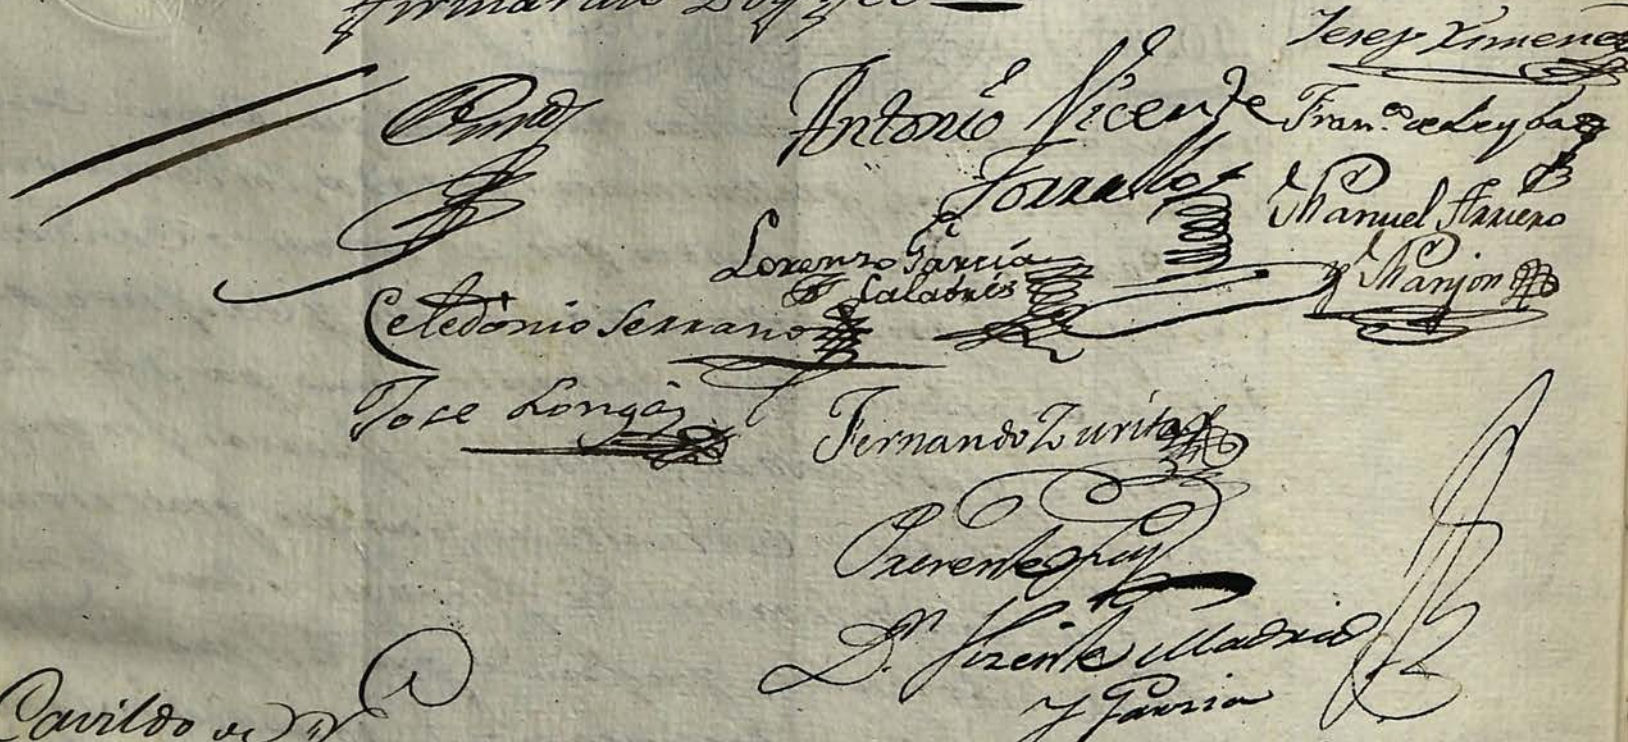 firmaron Doy fee
Jesep Ximenez
Antonio Vicente
Torrallo
Fran.co de Leyba
Manuel Arriero
y Manjon
Lorenzo Garcia
Celedonio Serrano
Jose Longa
Fernando Zurita
Presente fuy
D.n Vizente Madrid
y Garzia
Cavildo de